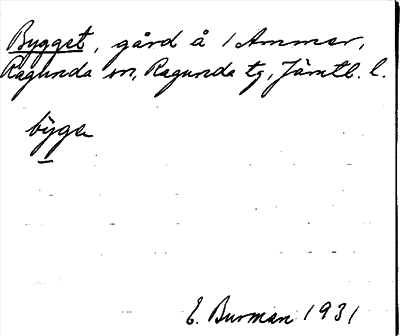 Bygget, gård å 1 Ammer,
Ragunda sn, Ragunda tg, Jämtl. l.
byge
E. Burman 1931